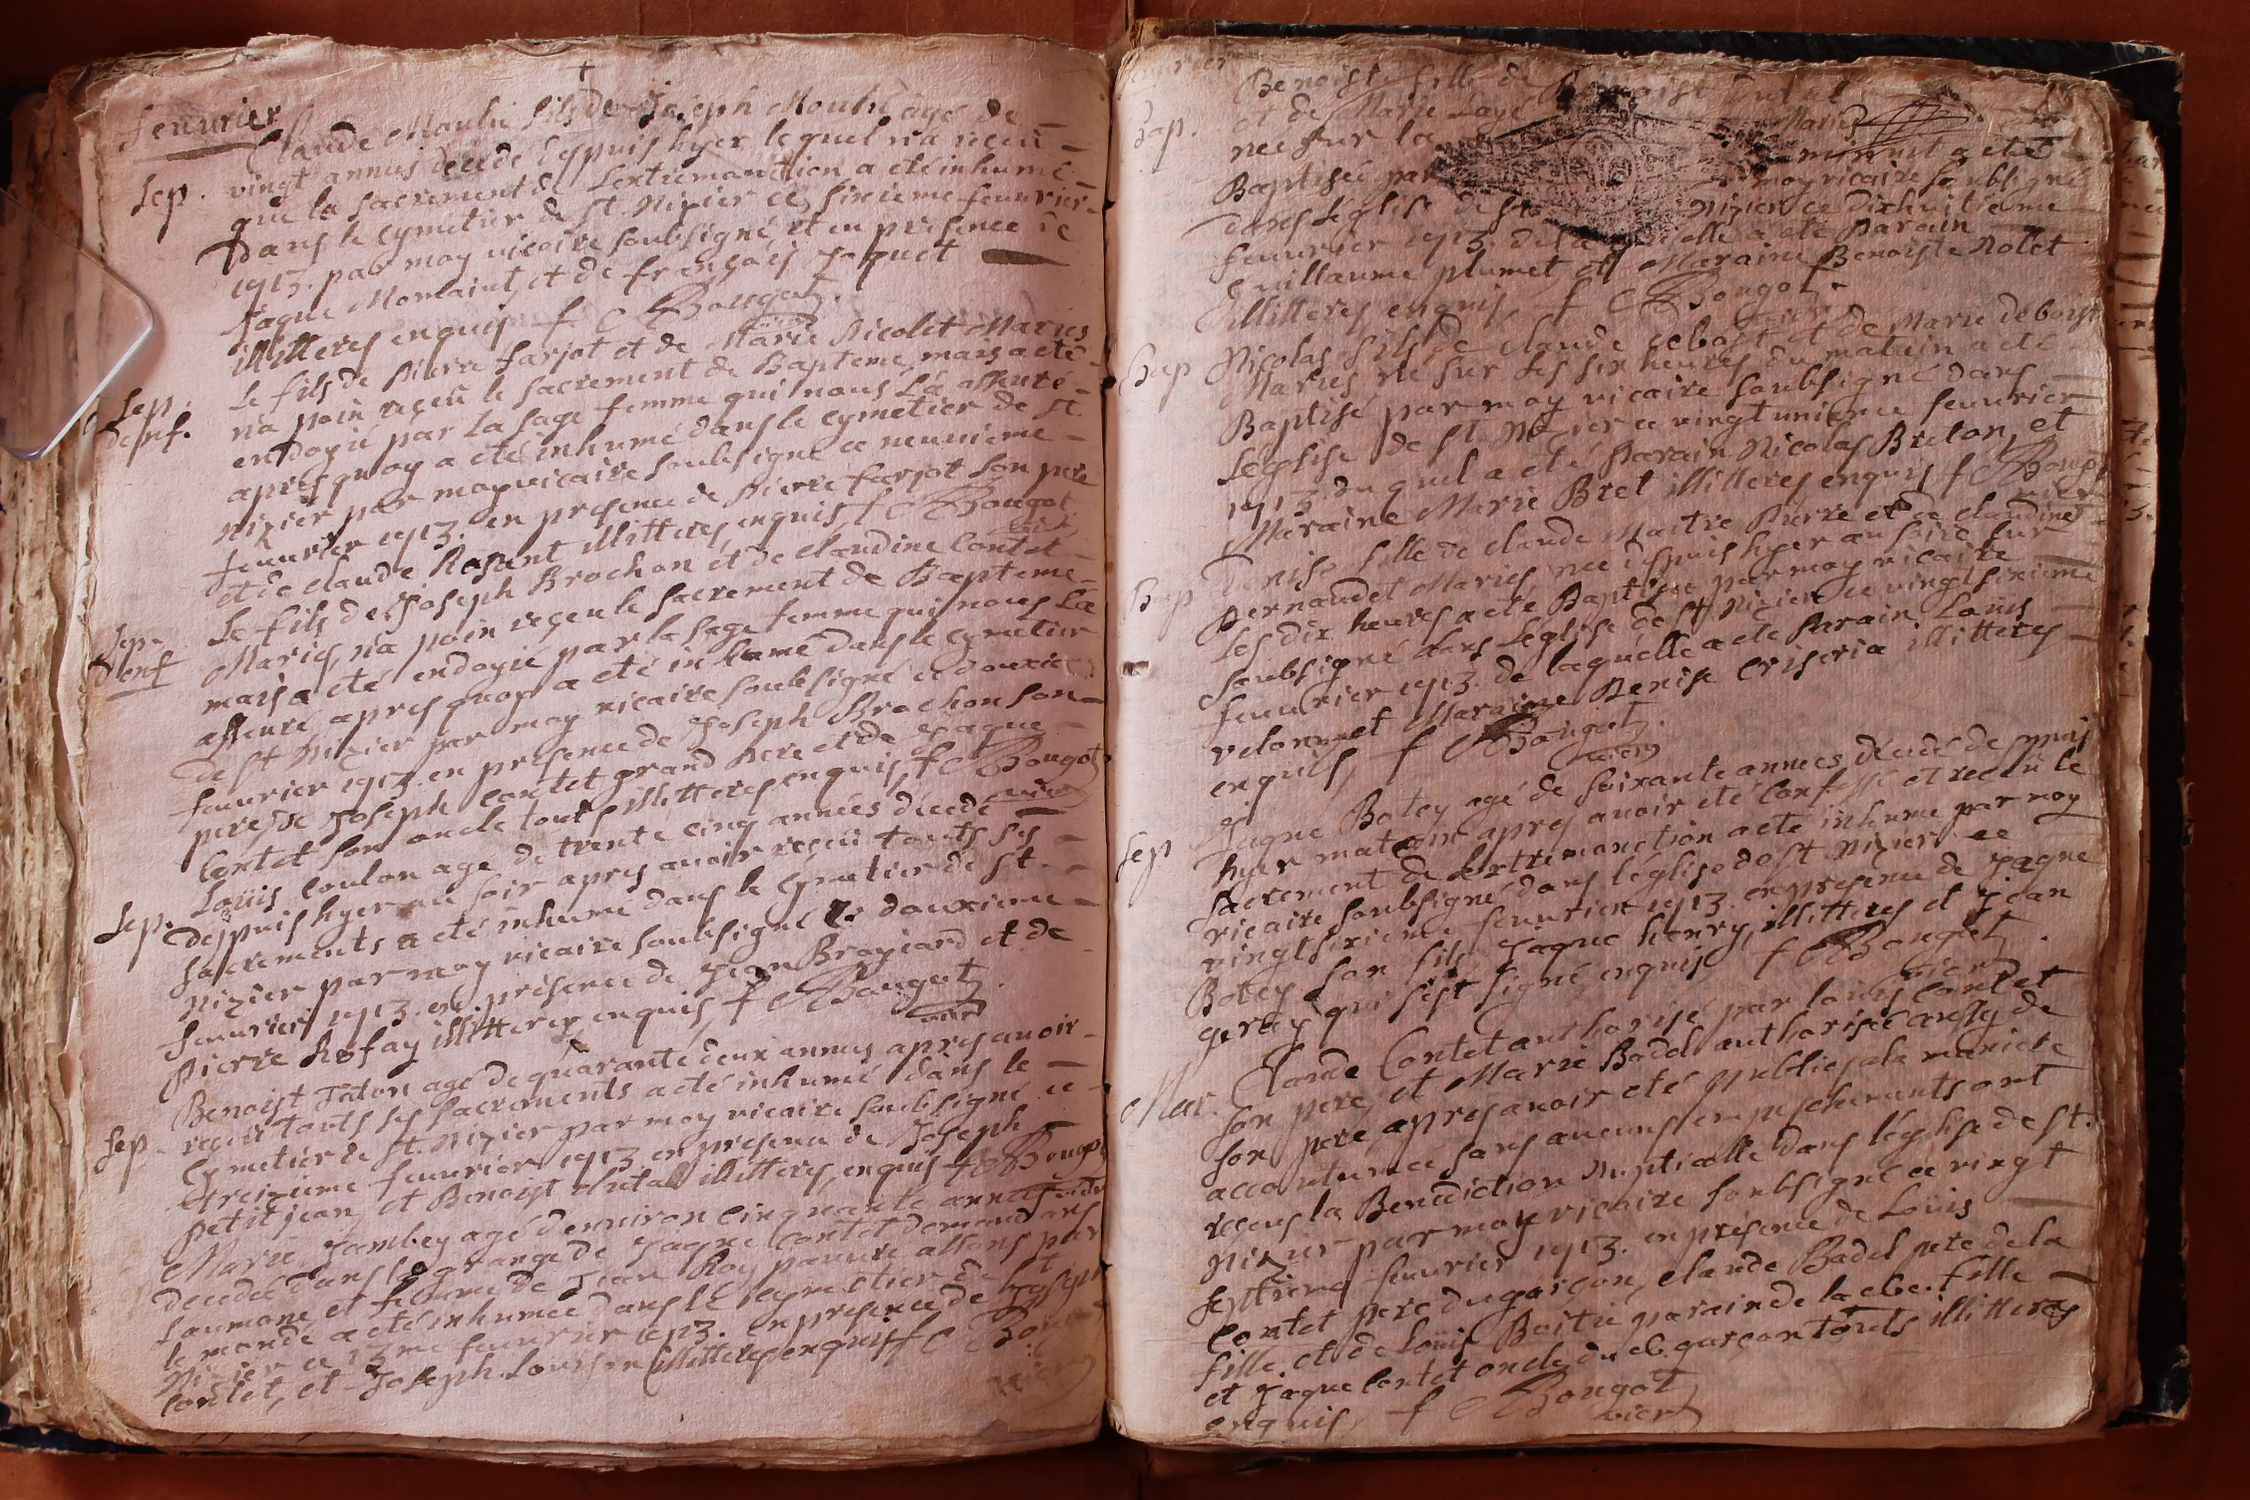 feuurier
Claude Moulu fils de Joseph Moulu agé de
Sep. vingt annus décedé depuis hyer le quel n'a receu
que la sacrement de Lextremonction a été inhumé
Dans le cymetier de St. Nizier ce sixieme feuurier
1713. par moy vicaire soubsigné et en presence de
Jaque Momaint et de françois Jaquet
illitteres enquis f C Bougot
Sep. Denf. Le fils de Pierre farjot et de Marie Nicolet Maries
n'a poin reçeu le sacrement de Bapteme, mais a été
endoyié par la sage femme qui nous L'a asseuré
apres quoy a été inhumé dans le cymetier de St.
Nizier par moy vicaire soubsigné ce neuuieme
feuurier 1713. en presence de Pierre farjot son pere
et de claude Rasent illitteres enquis f C Bougot
vicr
Sep. Denf Le fils de Joseph Brochon et de claudine Contet
Maries, n'a poin reçeu le sacrement de Bapteme
mais a été endoyié par la sage femme qui nous L'a
asseuré apres quoy a été inhumé dans le cymetier
de St Nizier par moy vicaire soubsigné ce douxie
feuurier 1713. en presence de Joseph Brochon son
pere, de Joseph contet grand Pere et de Jaque
Contet son oncle touts illitteres enquis, f C Bougot
vicr
Sep. Loüis Coulon agé de trente cinq années décedé
depuis hyer au soir apres auoir reçeu touts ses
sacrements a été inhumé dans le cymetier de St.
Nizier par moy vicaire soubsigné le douxieme
feuurier 1713. en présence de Jean Broyiard et de
Pierre Rofay illitteres enquis f C Bougot
vicr
Sep. Benoist Taton agé de quarante deux annus apres auoir
reçeu touts ses sacrements a été inhumé dans le
Cymetier de St. Nizier par moy vicaire soubsigné ce
treizieme feuurier 1713 en presence de Joseph
petitjean et Benoist illitteres, enquis f C Bougot
Marie Jambey agé denuiron cinquante années
decedée dans la grange de Jaque contet demandans
Laumone, et femme de Jean Roy pauure allans par
le monde a été inhumée dans le cymetier de St
Nizier ce 13me feuurier 1713. en presence de Joseph
contet, et Joseph Louison illitteres enquis f C Bougot
vicr
Benoiste fille de Benoist
Bap. et de Marie Laye Maries
nee sur la minuit a été
Baptisée par moy vicaire soubsigné
dans L'église de St Nizier ce Dixhuitieme
feuurier 1713. de la quelle a été Parain
Guillaume plumet et Maraine Benoiste Nolet
illitteres enquis, f C Bougot
vicr
Bap Nicolas fils de claude debost et de Marie debost
Maries né sur les six heures du matin a été
Baptisé par moy vicaire soubsigné dans
L'église de St Nizier ce vingtunieme feuurier
1713. du quel a été Parain Nicolas Breton, et
Maraine Marie Bret illitteres enquis f C Bougot
vicr
Bap Denise fille de claude Maitre Pierre et de claudine
Pernaudet Maries, nee depuis hyer au soir sur
Les dix heures a été Baptisée par moy vicaire
soubsigné dans L'eglise de St Nizier ce vingtsixieme
feuurier 1713. de laquelle a été Parain Loüis
velon et Maraine Denise illitteres
enquis f C Bougot
vicr
Sep Jaque Botey agé de soixante années décedé depuis
hyer matin apres auoir été Confessé et reçeu le
sacrement de Lextremonction a été inhumé par moy
vicaire soubsigné dans l'église de St Nizier ce
vingtsixieme feuurier 1713. en presence de Jaque
Botey son fils Jaque henry, illitteres et Jean
geray qui s'est signé enquis f C Bougot
vicr
Mar. Claude Contet authorisé par Loüis Contet
son pere, et Marie Badel authorisée aussy de
son pere apres auoir été publies a la maniere
accoutumee sans aucuns empeschements ont
reçeus la Benediction Nuptialle dans l'église de St.
Nizier par moy vicaire soubsigné ce vingt
septieme feuurier 1713. en présence de Loüis
Contet pere du garçon, claude Badel pere de la
fille, et de Loüis Boitie parain de lade. fille
et Jaque Contet oncle du d. garçon touts illitteres
enquis, f C Bougot
vicr